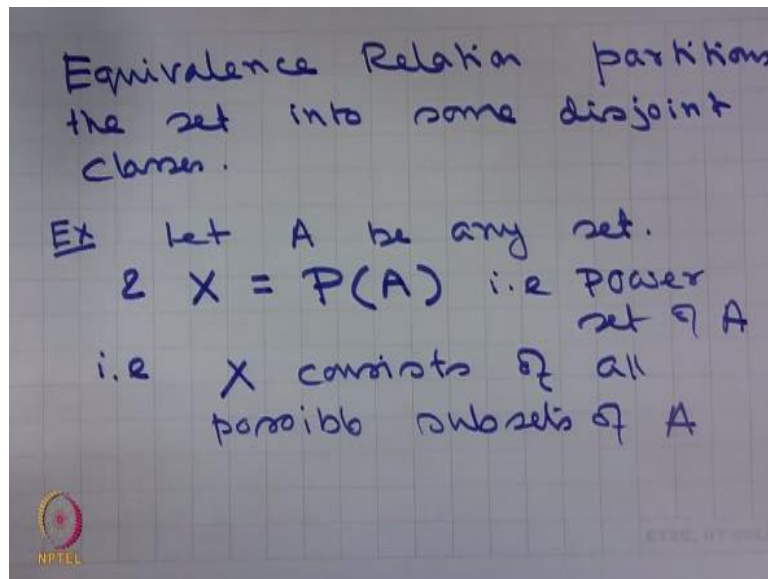 Equivalence Relation partitions
the set into some disjoint
classes.
Ex Let A be any set.
& X = P(A) i.e Power
set of A
i.e X consists of all
possible subsets of A
NPTEL